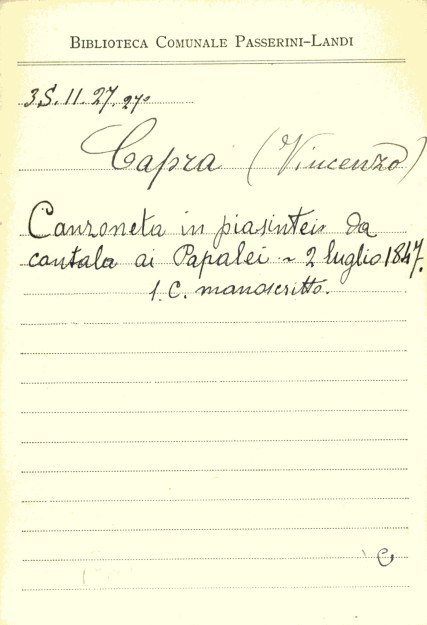 BIBLIOTECA COMUNALE PASSERINI-LANDI
3S.11.27.27º
Capra (Vincenzo)
Canzoneta in piasintein da
cantala ai Papalei - 2 luglio 1847.
1. C. manoscritto.
C